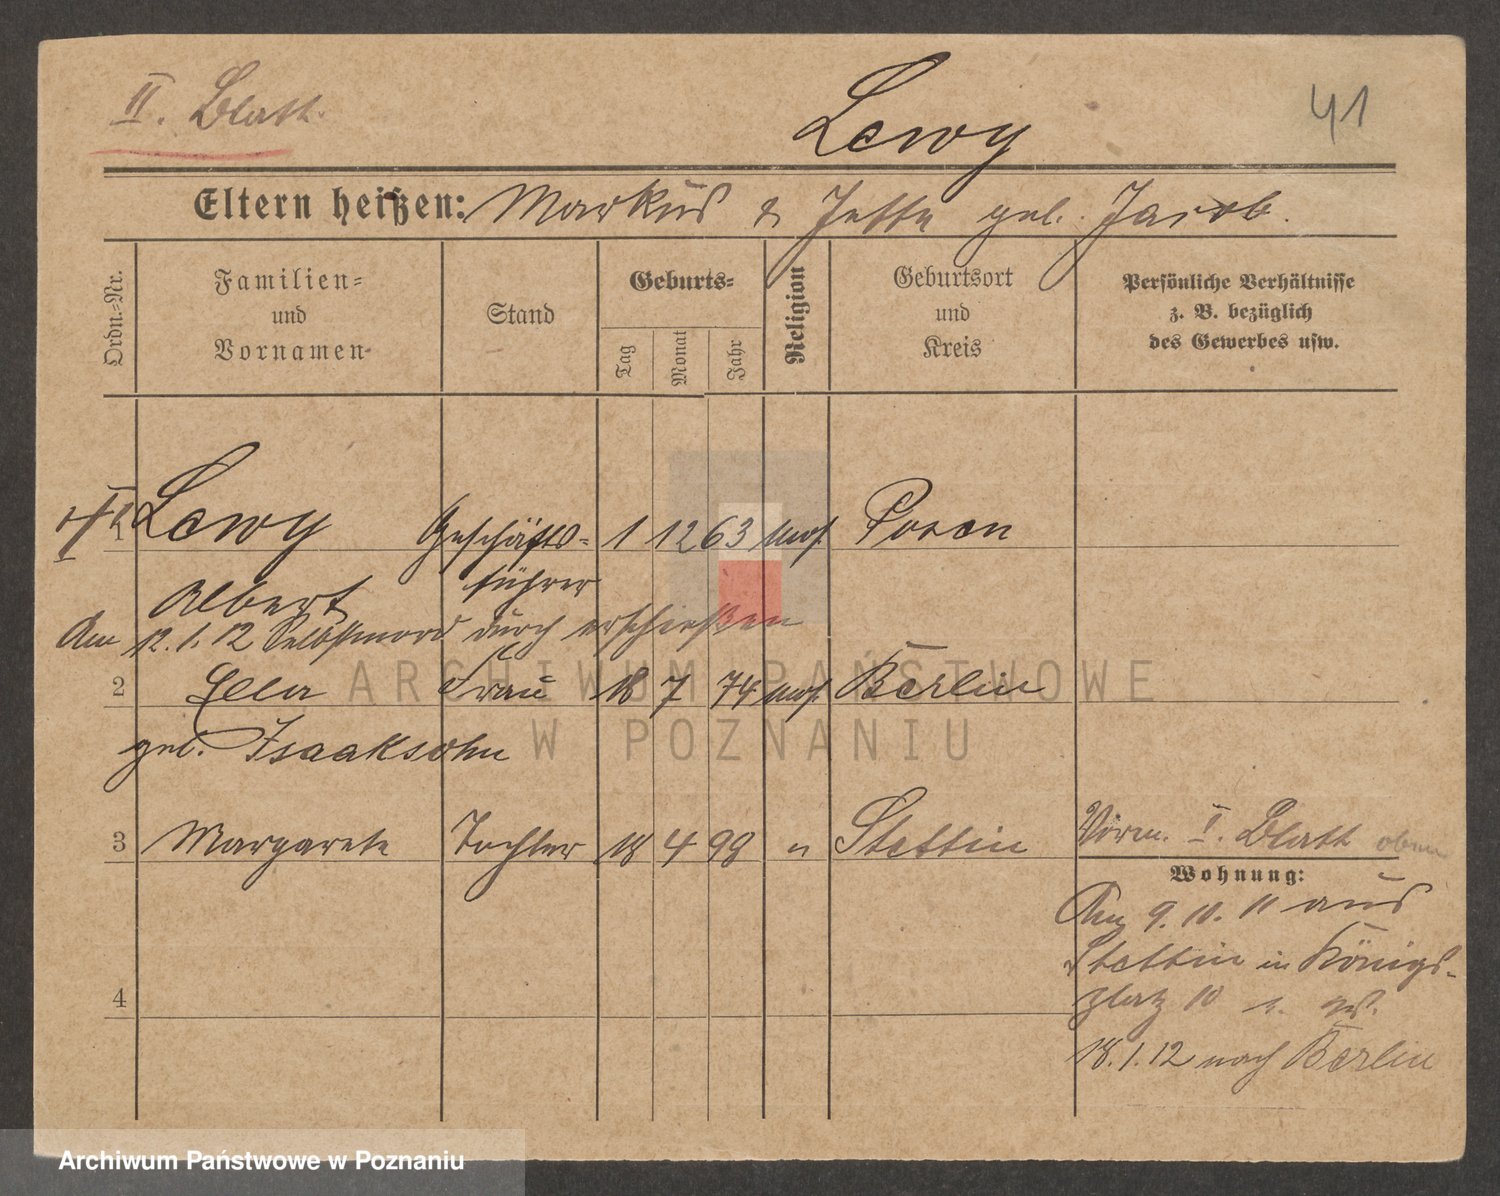 II. Blatt.
Lewy
41
Eltern heißen: Markus & Jette geb. Jacob.
Ordn.-Nr.
Familien-
und
Vornamen
Stand
Geburts-
Tag
Monat
Jahr
Religion
Geburtsort
und
Kreis
Persönliche Verhältnisse
z. B. bezüglich
des Gewerbes usw.
1 Lewy Geschäfts- 1 12 63 mos. Posen
Albert führer
Am 12.1.12 Selbstmord durch erschießen
2 Ella Frau 18 7 74 mos. Berlin
geb. Isaaksohn
3 Margarete Tochter 18 4 98 " Stettin
Vorm. I. Blatt oben
Wohnung:
Am 9.10.11 aus
Stettin in Königs-
platz 10
18.1.12 nach Berlin
4
ARCHIWUM PAŃSTWOWE
W POZNANIU
Archiwum Państwowe w Poznaniu